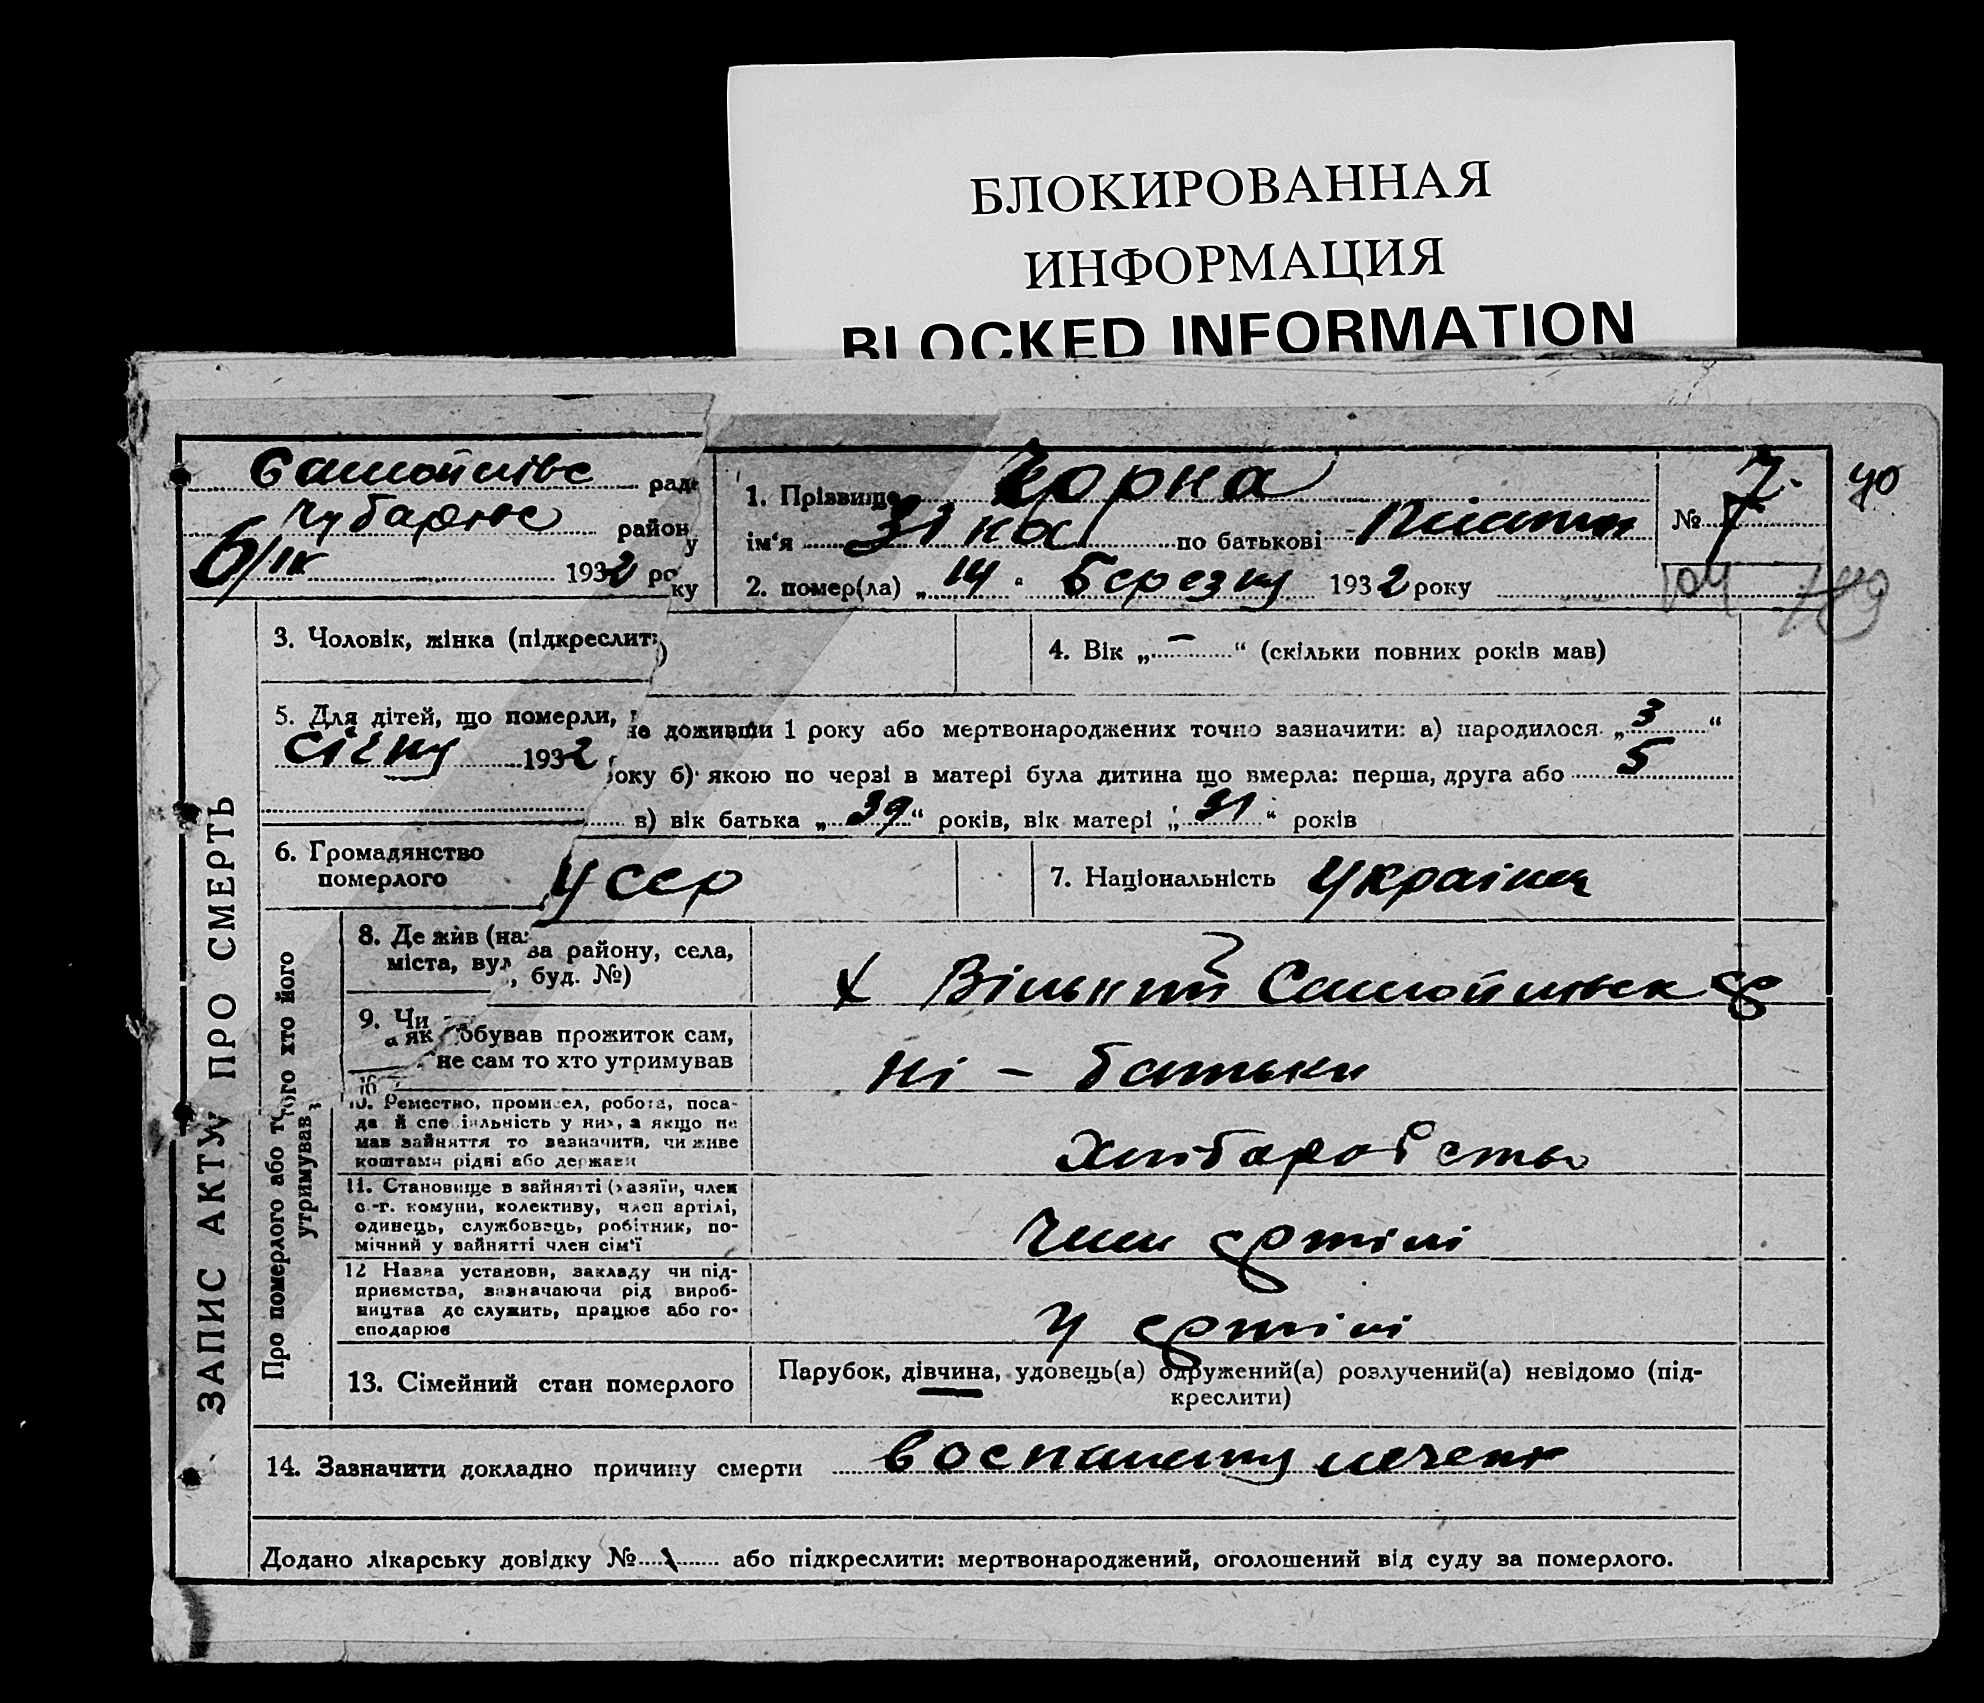 БЛОКИРОВАННАЯ
ИНФОРМАЦИЯ
BLOCKED INFORMATION
Самойлівс рада
Чубарівс району
6/IV 1932 року
1. Прізвище Чорна
ім'я Зінка по батькові
2. помер(ла) „14" Березня 1932 року
№ 7.
40
104
3. Чоловік, жінка (підкреслити)
4. Вік „—" (скільки повних років мав)
5. Для дітей, що померли, не доживши 1 року або мертвонароджених точно зазначити: а) народилося „3"
січня 1932 року б) якою по черзі в матері була дитина що вмерла: перша, друга або 5
в) вік батька „39" років, вік матері „31" років
6. Громадянство
померлого УССР
7. Національність Українка
ЗАПИС АКТУ ПРО СМЕРТЬ
Про померлого або того хто його
утримував
8. Де жив (назва району, села,
міста, вул., буд. №)
х Вільний Самойлівськ
9. Чи
а як добував прожиток сам,
не сам то хто утримував
Ні – батьки
10. Ремество, промисел, робота, поса-
да й спеціяльність у них, а якщо не
мав зайняття то зазначити, чи живе
коштами рідні або держави
Хліборобство
11. Становище в зайнятті (хазяїн, член
с.-г. комуни, колективу, член артілі,
одинець, службовець, робітник, по-
мічний у зайнятті член сім'ї
Член артілі
12 Назва установи, закладу чи під-
приємства, зазначаючи рід вироб-
ництва де служить, працює або го-
сподарює
У артілі
13. Сімейний стан померлого
Парубок, дівчина, удовець(а) одружений(а) розлучений(а) невідомо (під-
креслити)
14. Зазначити докладно причину смерти
Додано лікарську довідку № або підкреслити: мертвонароджений, оголошений від суду за померлого.